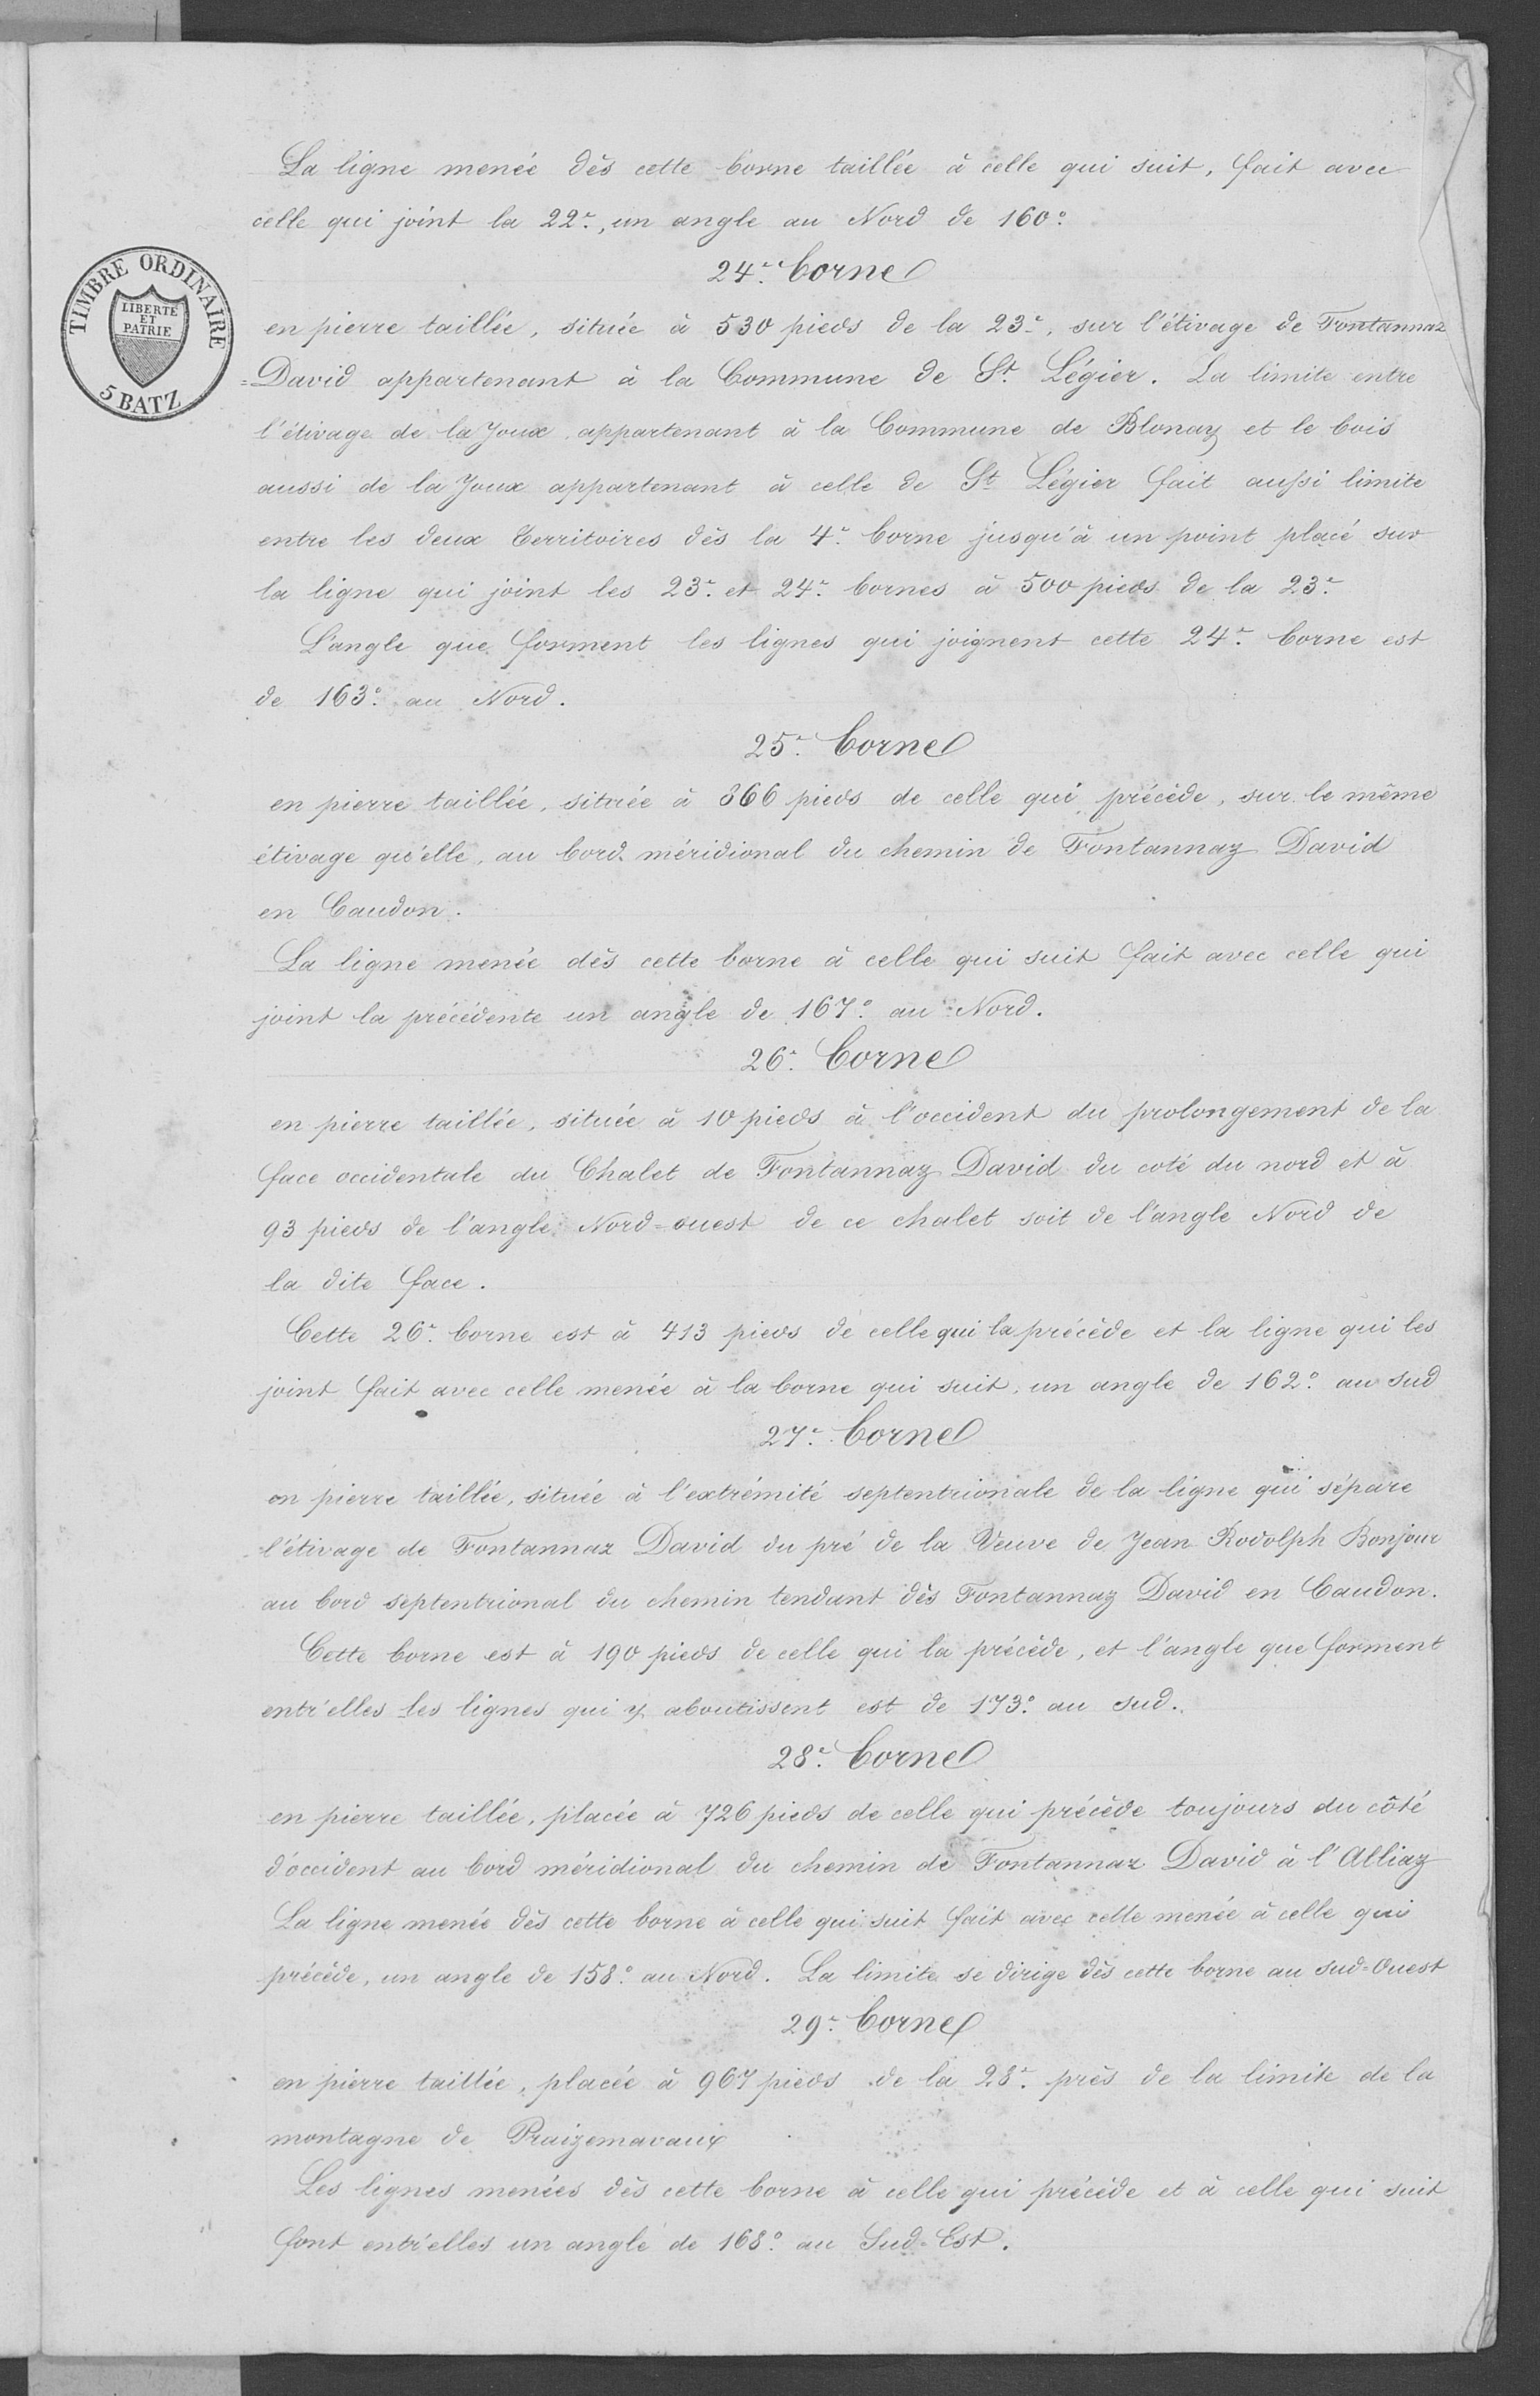 La ligne menée dès cette borne taillée à celle qui suit, fait avec
celle qui joint la 22e., un angle au Nord de 160°.
24e. borne
TIMBRE ORDINAIRE
LIBERTÉ
ET
PATRIE
5 BATZ
en pierre taillée, située à 530 pieds de la 23e., sur l'étivage de Fontannaz
=David appartenant à la Commune de St. Légier. La limite entre
l'étivage de la Joux appartenant à la Commune de Blonay et le bois
aussi de la Joux appartenant à celle de St. Légier fait aussi limite
entre les deux Territoires dès la 4e. borne jusqu'à un point placé sur
la ligne qui joint les 23e. et 24e. bornes à 500 pieds de la 23e.
L'angle que forment les lignes qui joignent cette 24e. borne est
de 163°. au Nord.
25e. borne
en pierre taillée, située à 366 pieds de celle qui précède, sur le même
étivage qu'elle, au bord méridional du chemin de Fontannaz David
en Caudon.
La ligne menée dès cette borne à celle qui suit fait avec celle qui
joint la précédente un angle de 167°. au Nord.
26e. borne
en pierre taillée, située à 10 pieds à l'occident du prolongement de la
face occidentale du Chalet de Fontannaz David du coté du nord et à
93 pieds de l'angle Nord=ouest de ce chalet soit de l'angle Nord de
la dite face.
Cette 26e. borne est à 413 pieds de celle qui la précède et la ligne qui les
joint fait avec celle menée à la borne qui suit, un angle de 162°. au sud
27e. borne
en pierre taillée, située à l'extrémité septentrionale de la ligne qui sépare
l'étivage de Fontannaz David du pré de la Veuve de Jean Rodolph Bonjour
au bord septentrional du chemin tendant dès Fontannaz David en Caudon.
Cette borne est à 190 pieds de celle qui la précède, et l'angle que forment
entr'elles les lignes qui y aboutissent est de 173°. au sud.
28e. borne
en pierre taillée, placée à 726 pieds de celle qui précède toujours du côté
d'occident au bord méridional du chemin de Fontannaz David à l'Alliaz
La ligne menée dès cette borne à celle qui suit fait avec celle menée à celle qui
précède, un angle de 158°. au Nord. La limite se dirige dès cette borne au sud=Ouest
29e. borne
en pierre taillée, placée à 967 pieds de la 28e. près de la limite de la
montagne de Praizemavaux
Les lignes menées dès cette borne à celle qui précède et à celle qui suit
font entr'elles un angle de 168°. au Sud=Est.